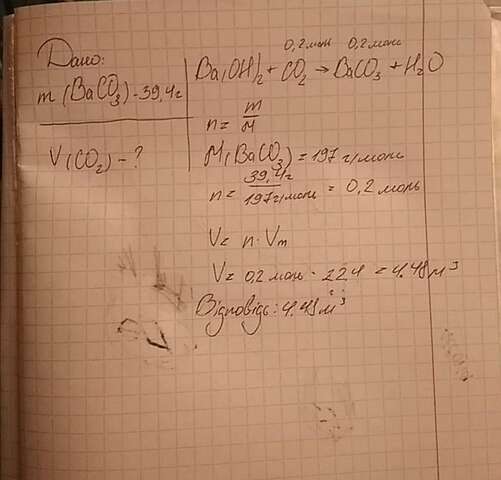 Дано:
m (BaCO3) - 39,4г
V(CO2) - ?
0,2моль 0,2моль
Ba(OH)2 + CO2 → BaCO3 + H2O
n = m/M
M(BaCO3) = 197 г/моль
n = 39,4г/197г/моль = 0,2 моль
V = n · Vm
V = 0,2 моль · 22,4 = 4.48 м³
Відповідь: 4.48 м³